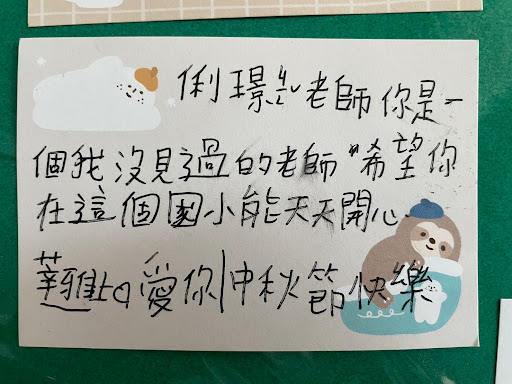 俐璟老師你是一
個我沒見過的老師希望你
在這個國小能天天開心
愛你 中秋節快樂